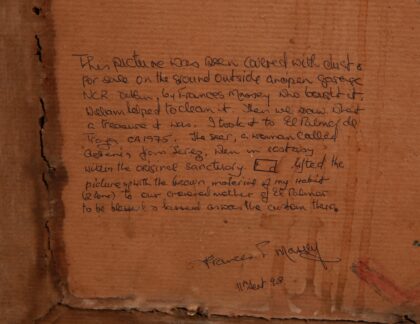 This picture was seen covered with dust &
for sale on the ground outside an open garage
NCR Dublin, by Frances Massey who bought it.
William helped to clean it. Then we saw what
a treasure it was. I took it to El Palmar de
Troya CA 1975. The seer, a woman called
from Jerez, when in ecstasy
within the original sanctuary. lifted the
picture up with the brown material of my habit
to our crowned mother of El Palmar
to be blessed & passed across the curtain there.
Frances P Massey
Sept 98